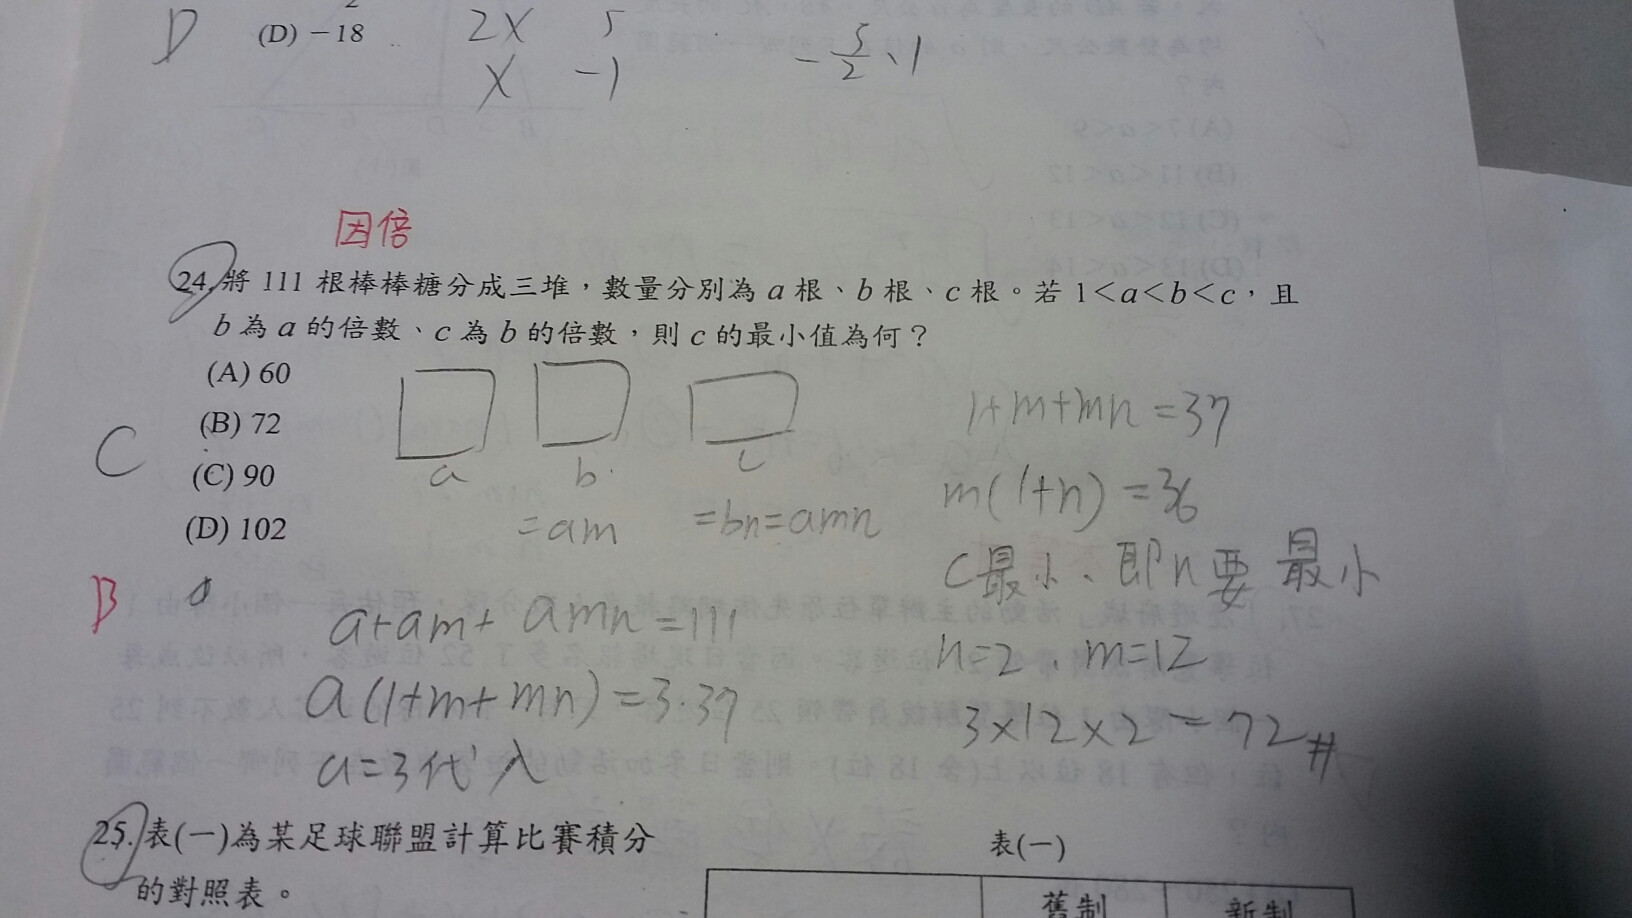 D (D) −18 2x 5 −5/2、1
x −1
因倍
24. 將 111 根棒棒糖分成三堆，數量分別為 a 根、b 根、c 根。若 1＜a＜b＜c，且
b 為 a 的倍數、c 為 b 的倍數，則 c 的最小值為何？
(A) 60
(B) 72
C (C) 90
(D) 102
a b c
=am =bn=amn
1+m+mn=37
m(1+n)=36
C最小、即n要最小
n=2、m=12
3×12×2=72#
B
a+am+amn=111
a(1+m+mn)=3·37
a=3代入
25. 表(一)為某足球聯盟計算比賽積分
的對照表。
表(一)
舊制 新制